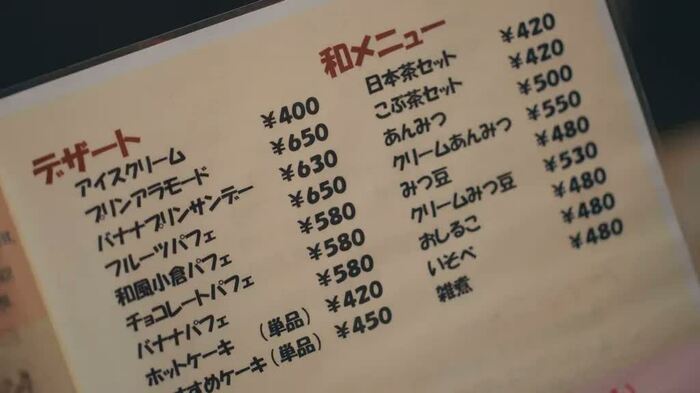 デザート
アイスクリーム ¥400
プリンアラモード ¥650
バナナプリンサンデー ¥630
フルーツパフェ ¥650
和風小倉パフェ ¥580
チョコレートパフェ ¥580
バナナパフェ ¥580
ホットケーキ (単品) ¥420
すすめケーキ(単品) ¥450
和メニュー
日本茶セット ¥420
こぶ茶セット ¥420
あんみつ ¥500
クリームあんみつ ¥550
みつ豆 ¥480
クリームみつ豆 ¥530
おしるこ ¥480
いそべ ¥480
雑煮 ¥480